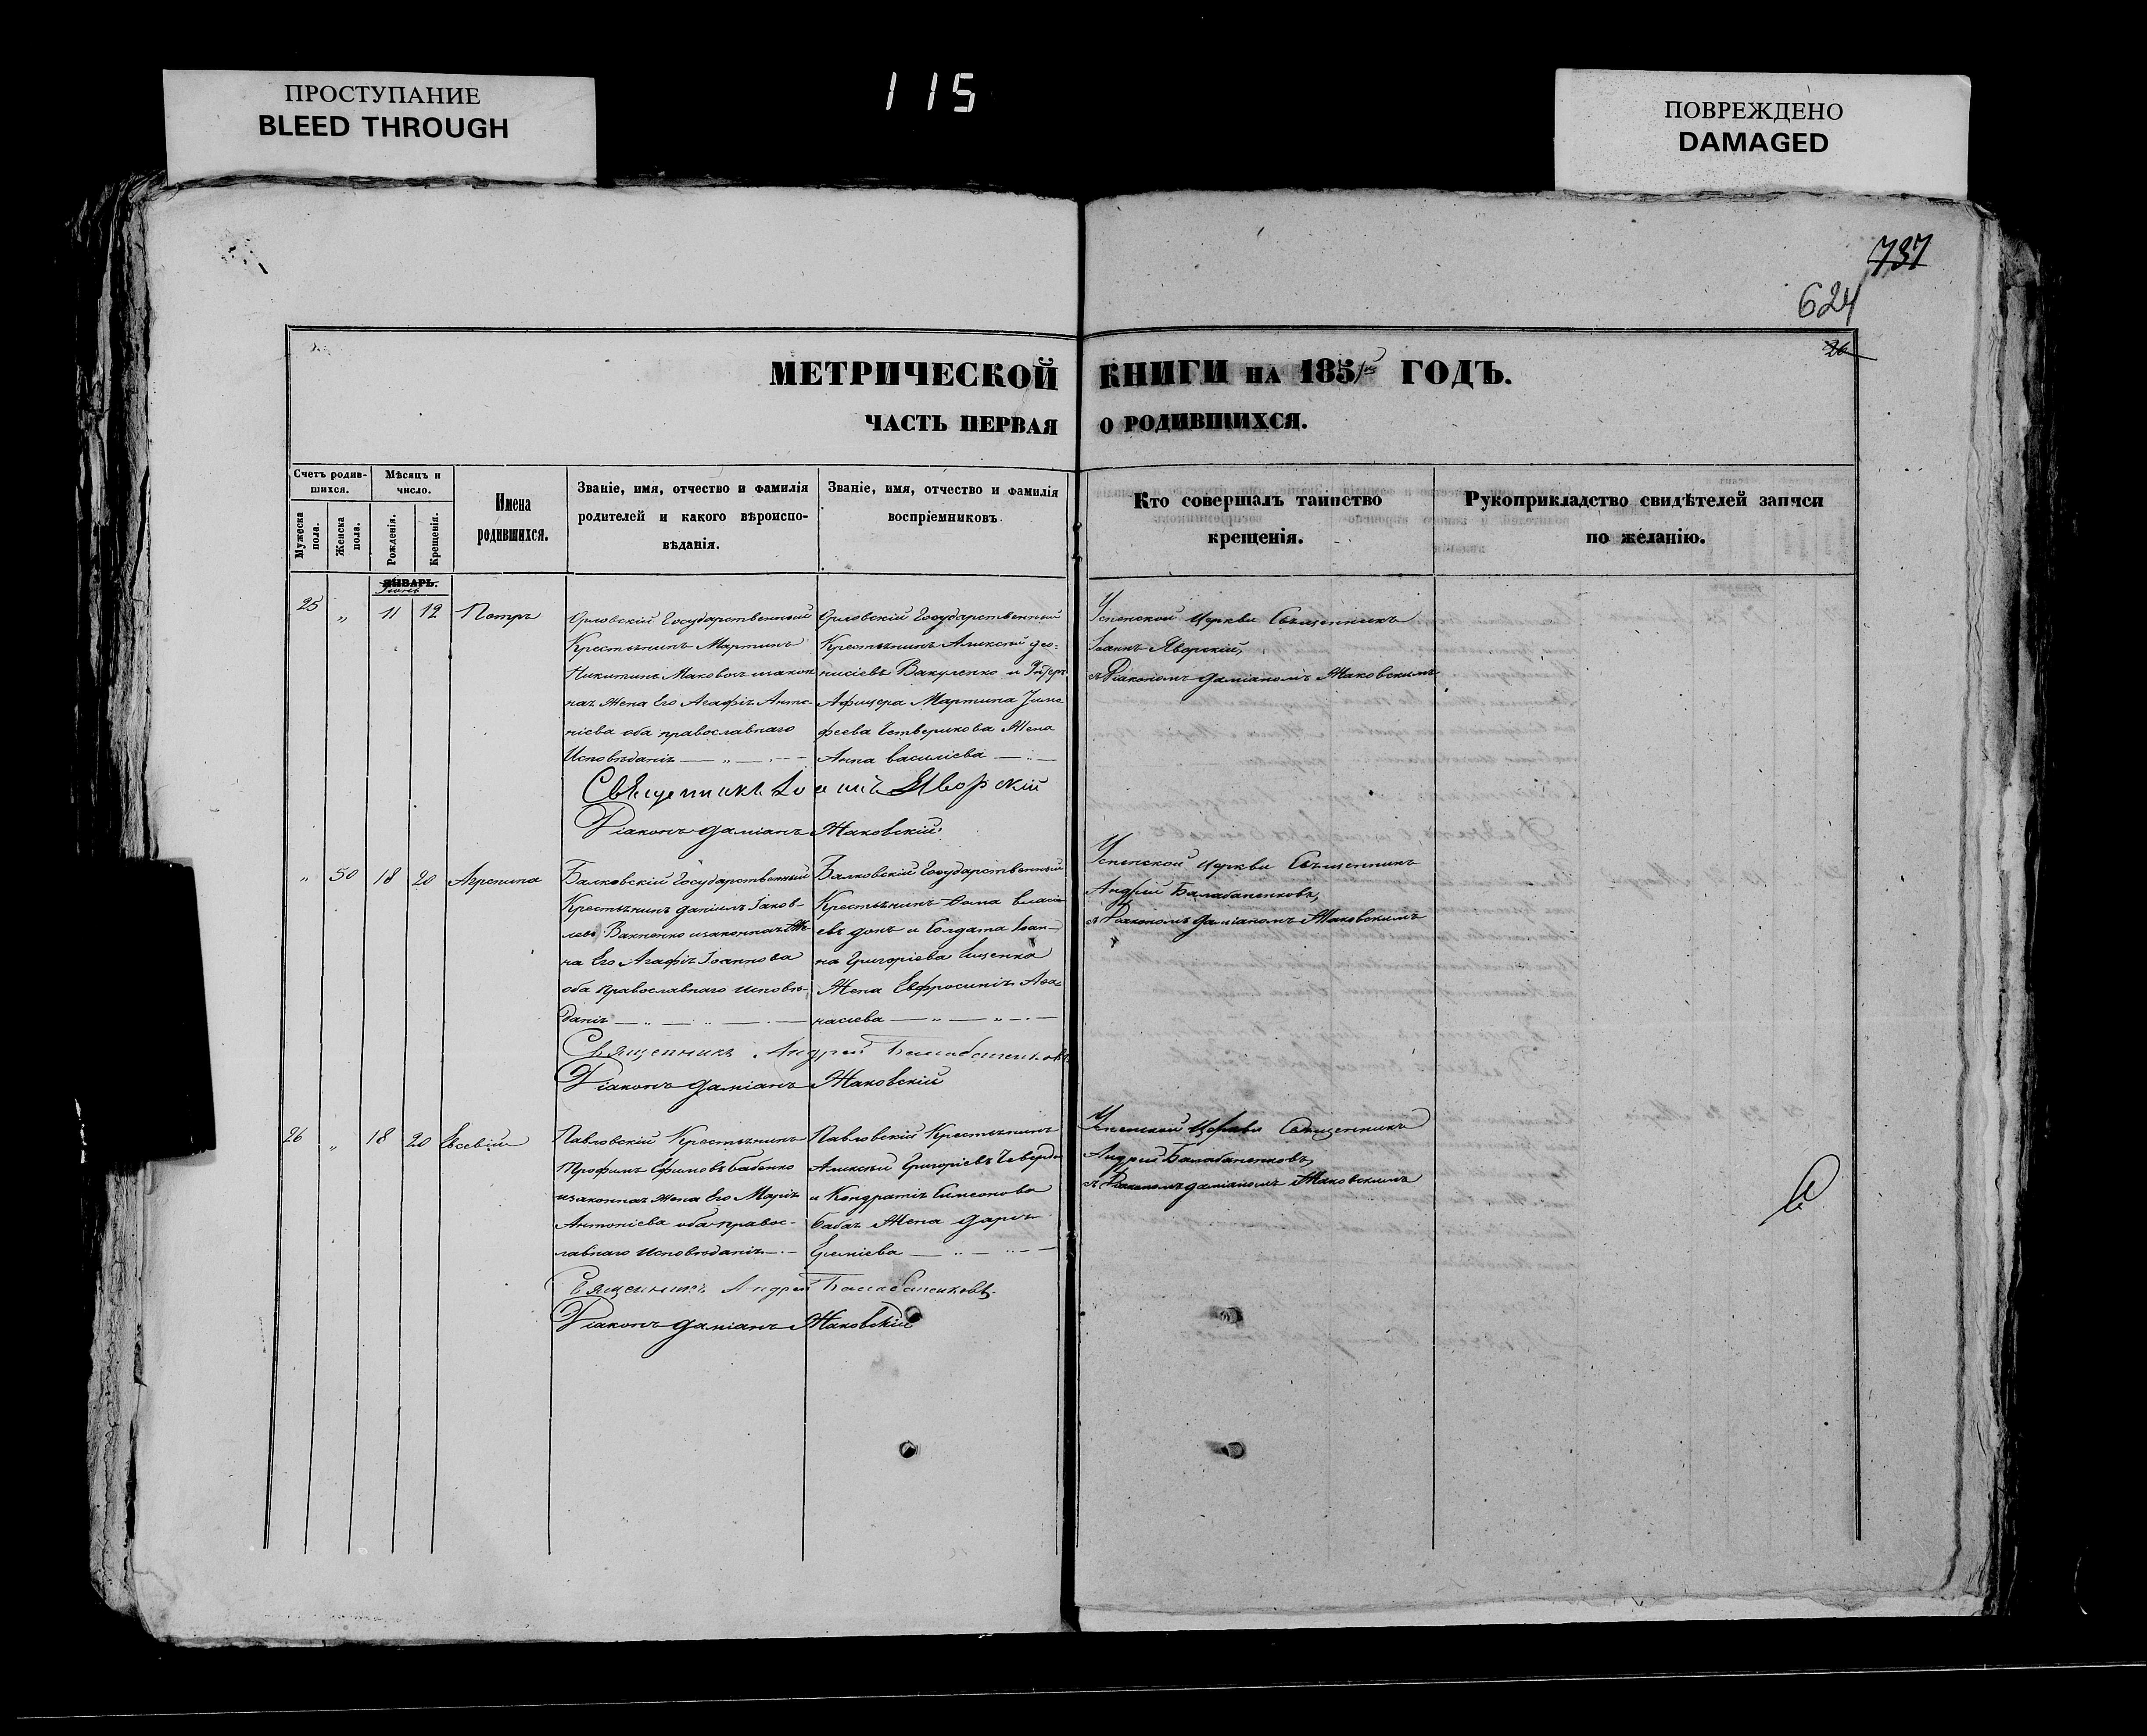 ПРОСТУПАНИЕ
BLEED THROUGH
115
ПОВРЕЖДЕНО
DAMAGED
737
624
26
МЕТРИЧЕСКОЙ КНИГИ НА 1851 ГОДЪ.
ЧАСТЬ ПЕРВАЯ О РОДИВШИХСЯ.
Счетъ родив-
шихся.
Мужеска пола.
Женска пола.
Мѣсяцъ и
число.
Рожденія.
Крещенія.
Имена
родившихся.
Званіе, имя, отчество и фамилія
родителей и какого вѣроиспо-
вѣданія.
Званіе, имя, отчество и фамилія
воспріемниковъ.
Кто совершалъ таинство
крещенія.
Рукоприкладство свидѣтелей записи
по желанію.
ЯНВАРЬ.
Іюнь
25 „ 11 12 Петръ
Орловскій Государственный
Крестьянинъ Мартинъ
Никитинъ
жена Его Агафія Анто-
ніева оба православнаго
Исповѣданія
Орловскій Государственный
Крестьянинъ Алексѣй Део-
нисіевъ Вакуленко и Унтеръ
Афицера Мартина Тимо
феева Четверикова Жена
Анна Василіева
Успенской Церкви Священникъ
Іоаннъ Яворскій,
съ Діакономъ Даміаномъ Жаковскимъ
Священникъ Іоаннъ Яворскій
Діаконъ Даміанъ Жаковскій
„ 50 18 20 Агрепина
Балковскій Государственный
Крестьянинъ Даніилъ Іаков-
левъ изаконная Же-
на Его Агафія Іоаннова
оба православнаго исповѣ-
данія
Балковскій Государственный
Крестьянинъ Ѳома Власі
евъ и Солдата Іоан-
на Григоріева Ищенка
Жена Евфросинія Аѳа-
насіева
Успенской Церкви Священникъ
Андрей Балабаненковъ,
съ Діакономъ Даміаномъ Жаковскимъ
Священникъ Андрей Балабаненковъ
Діаконъ Даміанъ Жаковскій
26 „ 18 20 Евсевій
Павловскій Крестьянинъ
Трофимъ Ефимовъ Бабенко
изаконная жена Его Марія
Антоніева оба правос-
лавнаго Исповѣданія
Павловскій Крестьянинъ
Алексѣй Григоріевъ
и Кондратія Симеонова
Жена Дарія
Успенской Церкви Священникъ
Андрей Балабаненковъ,
съ Діакономъ Даміаномъ Жаковскимъ
Священникъ Андрей Балабаненковъ
Діаконъ Даміанъ Жаковскій